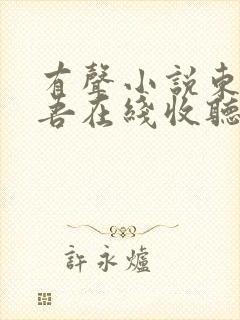 有聲小說東
吾在綫收聽
許永爐